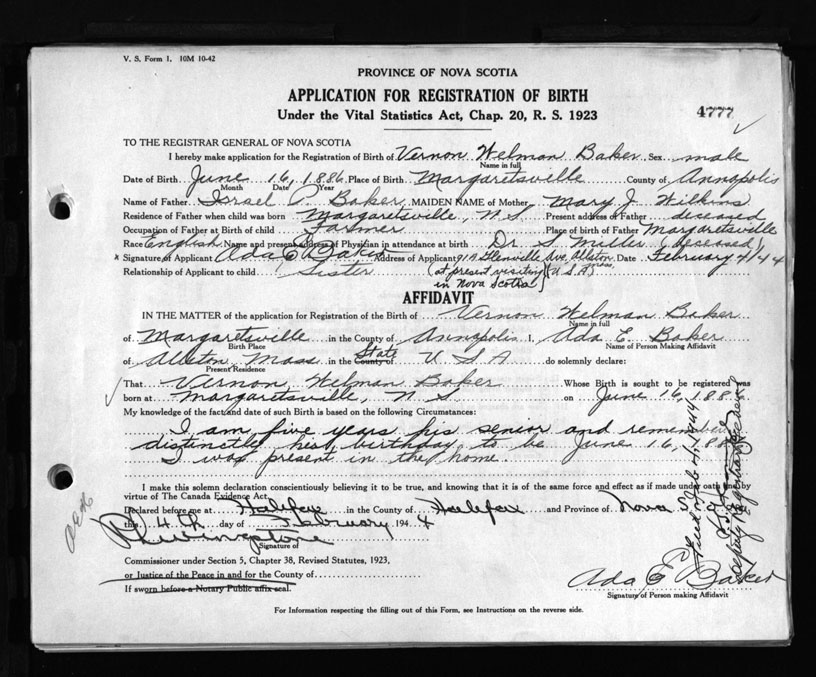 V. S. Form 1, 10M 10-42
PROVINCE OF NOVA SCOTIA
APPLICATION FOR REGISTRATION OF BIRTH
Under the Vital Statistics Act, Chap. 20, R. S. 1923
4777
TO THE REGISTRAR GENERAL OF NOVA SCOTIA
I hereby make application for the Registration of Birth of Vernon Welman Baker Sex male
Name in full
Date of Birth June 16, 1886 Place of Birth Margaretsville County of Annapolis
Month Date Year
Name of Father Israel P. Baker MAIDEN NAME of Mother Mary J Wilkins
Residence of Father when child was born Margaretsville, N S Present address of Father deceased
Occupation of Father at Birth of child Farmer Place of birth of Father Margaretsville
Race English Name and present address of Physician in attendance at birth Dr S Miller (deceased)
x Signature of Applicant Ada E Baker Address of Applicant 91A Glenville Ave, Allston Date February 4/44
Relationship of Applicant to child Sister (at present visiting U.S.A.
in Nova Scotia)
AFFIDAVIT
IN THE MATTER of the application for Registration of the Birth of Vernon Welman Baker
Name in full
of Margaretsville in the County of Annapolis I, Ada E. Baker
Birth Place Name of Person Making Affidavit
of Allston Mass in the County State U S A do solemnly declare:
Present Residence
That Vernon, Welman Baker Whose Birth is sought to be registered was
born at Margaretsville, N S on June 16, 1886
My knowledge of the fact and date of such Birth is based on the following Circumstances:
I am five years his senior and remember
distinctly his birthday to be June 16, 1886
I was present in the home.
I make this solemn declaration conscientiously believing it to be true, and knowing that it is of the same force and effect as if made under oath and by
virtue of The Canada Evidence Act.
Declared before me at Halifax in the County of Halifax and Province of Nova
this 4th day of February 1944
Livingstone
Signature of
Commissioner under Section 5, Chapter 38, Revised Statutes, 1923,
or Justice of the Peace in and for the County of
If sworn before a Notary Public affix seal.
Ada E Baker
Signature of Person making Affidavit
For Information respecting the filling out of this Form, see Instructions on the reverse side.
Feb 4, 1944
Deputy Registrar General